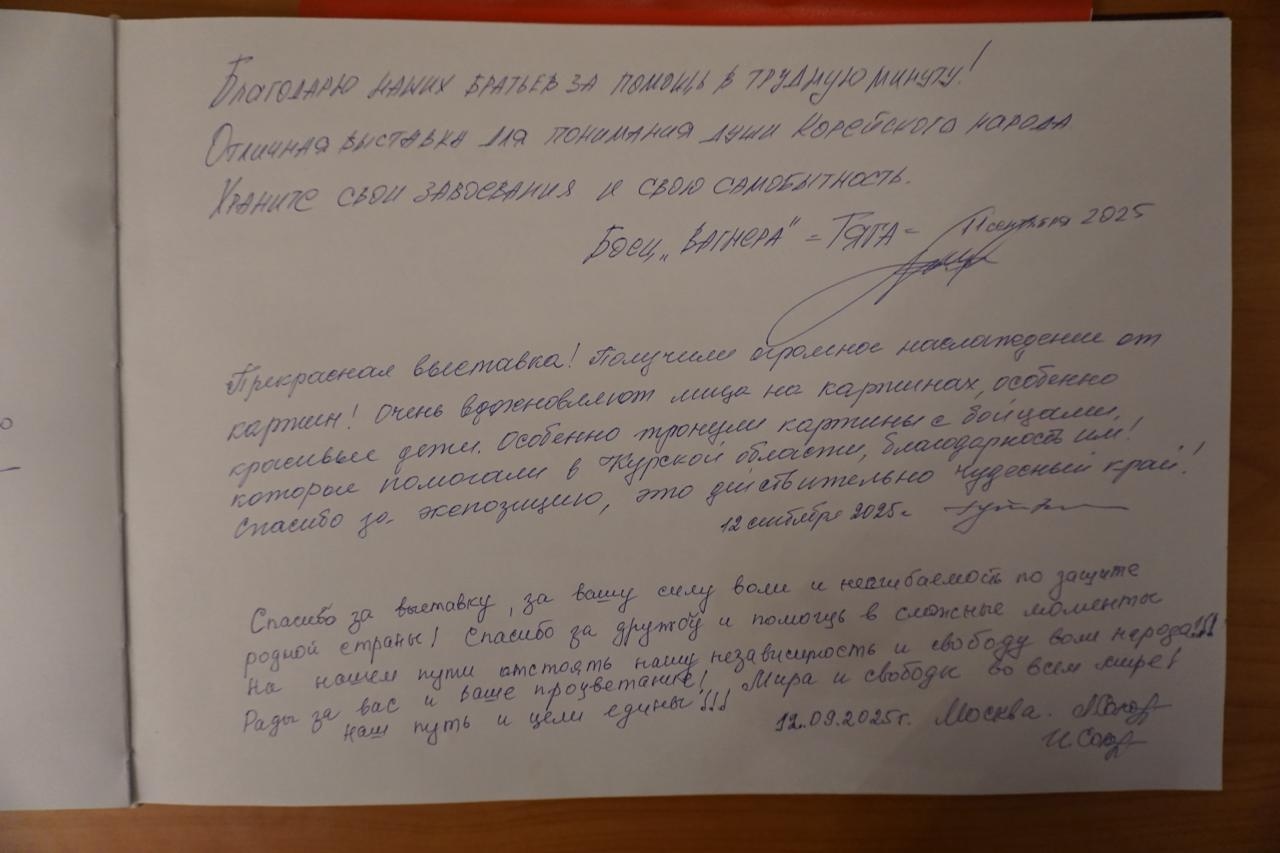 Благодарю наших братьев за помощь в трудную минуту!
Отличная выставка для понимания души Корейского народа
Храните свои завоевания и свою самобытность.
Боец „Вагнера“ = Тяга = 11 сентября 2025
Прекрасная выставка! Получили огромное наслаждение от
картин! Очень вдохновляют лица на картинах, особенно
красивые дети. Особенно тронули картины с бойцами,
которые помогали в Курской области, благодарность им!
Спасибо за экспозицию, это действительно чудесный край!
12 сентября 2025г
Спасибо за выставку, за вашу силу воли и несгибаемость по защите
родной страны! Спасибо за дружбу и помощь в сложные моменты
На нашем пути отстоять нашу независимость и свободу воли народа!!!
Рады за вас и ваше процветание! Мира и свободы во всем мире!
Наш путь и цели едины!!!
12.09.2025г. Москва.